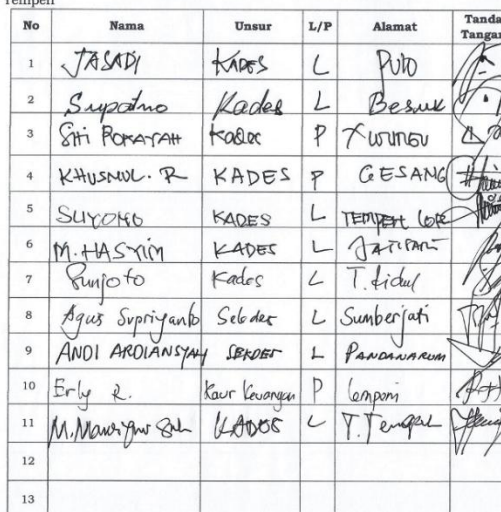 Tempeh
No Nama Unsur L/P Alamat Tanda Tangan
1 JASADI KADES L Pulo
2 Supatno Kades L Besuk
3 Siti ROKAYAH Kades P
4 KHUSNUL. R KADES P GESANG
5 SUYONO KADES L TEMPEH LOR
6 M. HASYIM KADES L JATISARI
7 Sunjoto Kades L T. Kidul
8 Agus Supriyanto Sekdes L Sumberjati
9 ANDI ARDIANSYAH SEKDES L PANDANARUM
10 Erly R. Kaur Keuangan P Lempeni
11 KADES L T. Tengah
12
13